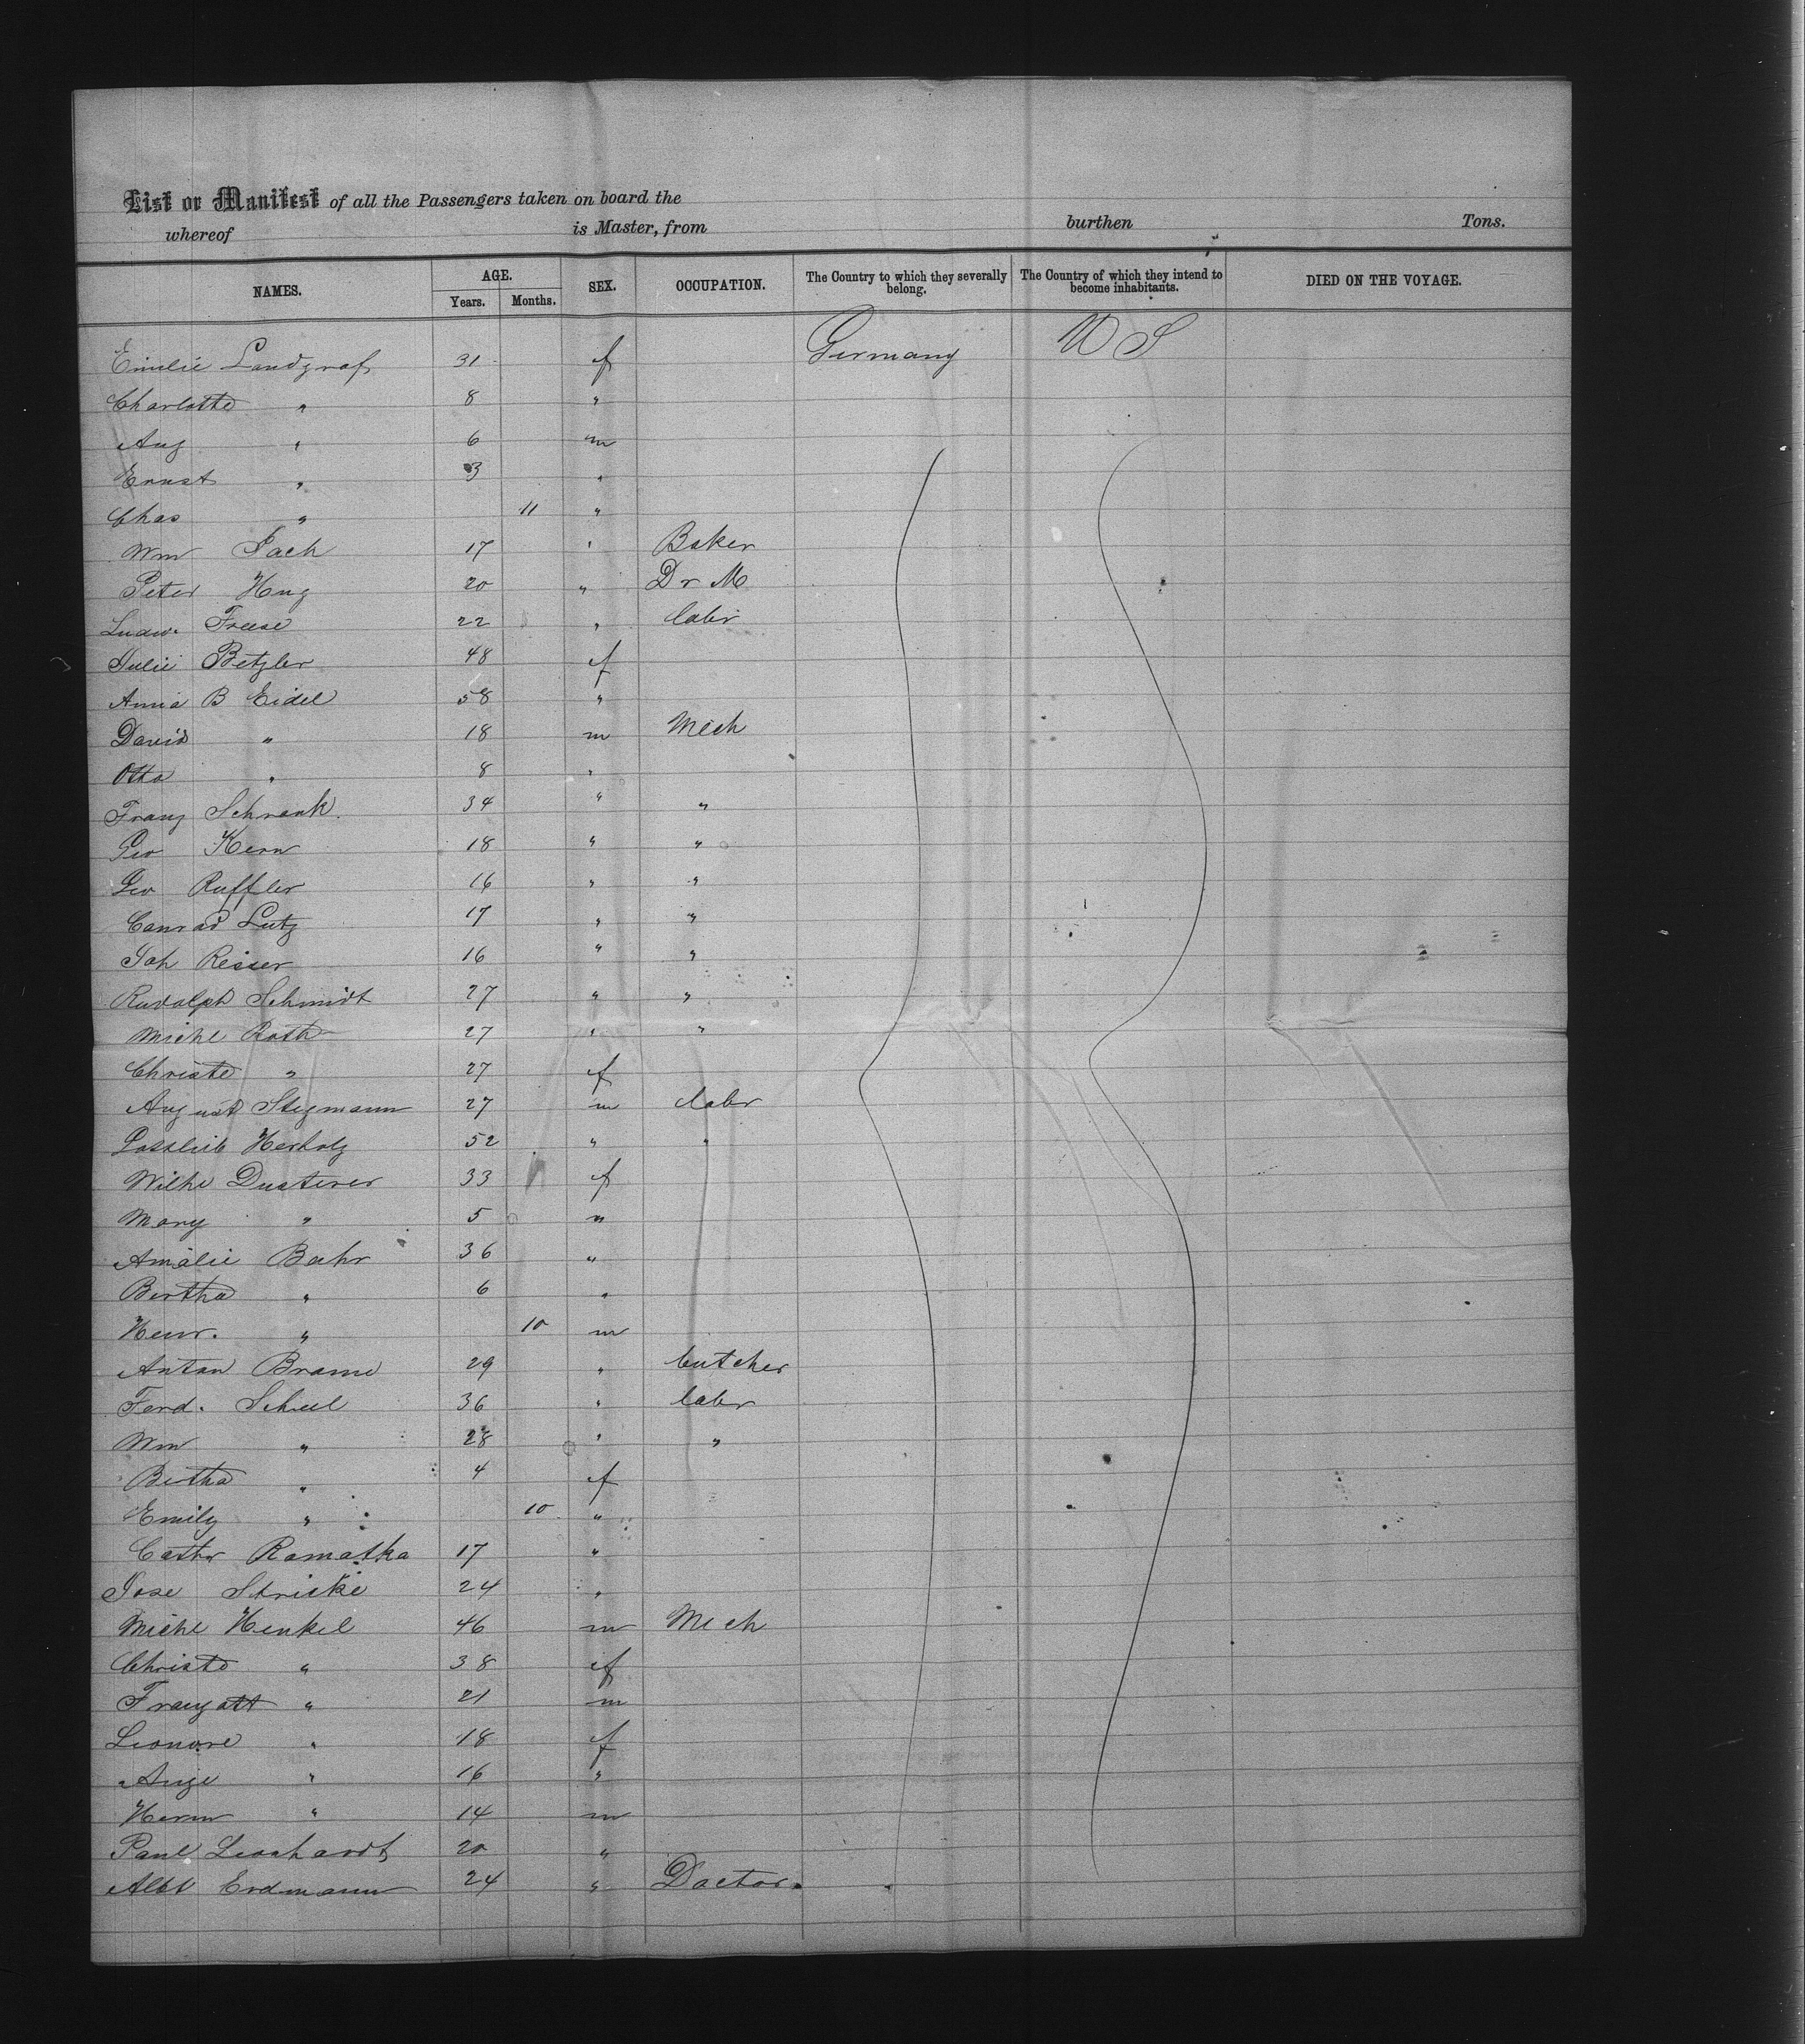 List or Manifest of all the Passengers taken on board the
whereof is Master, from burthen Tons.
NAMES. AGE. Years. Months. SEX. OCCUPATION. The Country to which they severally belong. The Country of which they intend to become inhabitants. DIED ON THE VOYAGE.
Emilie Landgraf 31 f Germany U S
Charlotte " 8 "
Aug " 6 m
Ernst " 3 "
Chas " 11 "
Wm Pach 17 " Baker
Peter Hug 20 " Dr M
Ludw. Freese 22 " labr
Julie Betzler 48 f
Anna B Eidel 58 "
David " 18 m Mech
Otto " 8 "
Franz Schrank 34 " "
Geo Kern 18 " "
Geo Ruffler 16 " "
Conrad Lutz 17 " "
Joh Risser 16 " "
Rudolph Schmidt 27 " "
Michl Roth 27 " "
Christe " 27 f
August Stegmann 27 m labr
Gottlieb Herholz 52 " "
Wilhe Dusterer 33 f
Mary " 5 "
Amalie Bahr 36 "
Bertha " 6 "
Henr. " 10 m
Anton Brame 29 " butcher
Ferd. Scheel 36 " labr
Wm " 28 " "
Bertha " 4 f
Emily " 10 "
Cathr Ramatka 17 "
Jose Stricke 24 "
Michl Henkel 46 m Mech
Christe " 38 f
Traugott " 21 m
Leonore " 18 f
" 16 "
Herm " 14 m
Paul Leonhardt 20 "
Albt Erdmann 24 " Doctor